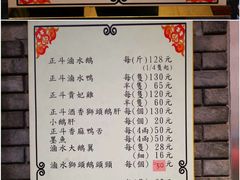 正斗滷水鵝 每(斤)128元
(1/4隻起)
正斗滷水鴨 每(隻)130元
半(隻)65元
正斗貴妃雞 每(隻)120元
半(隻)60元
正斗酒香獅頭鵝肝 每(個)130元
小鵝肝 每(個)20元
正斗香麻鴨舌 每(4両)50元
墨魚 每(4両)50元
滷水大鵝翼 每(隻)28元
(細)16元
滷水獅頭鵝頭頸 每(個)50